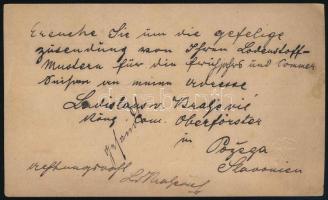 Ersuche Sie um die gefelige
zusendung von Ihren Lodenstoff-
Mustern für die Frühjahrs und Sommer
Saison an meine Adresse
Ladislaus v.
Kön. Com. Oberförster
in
Požega
Slavonien